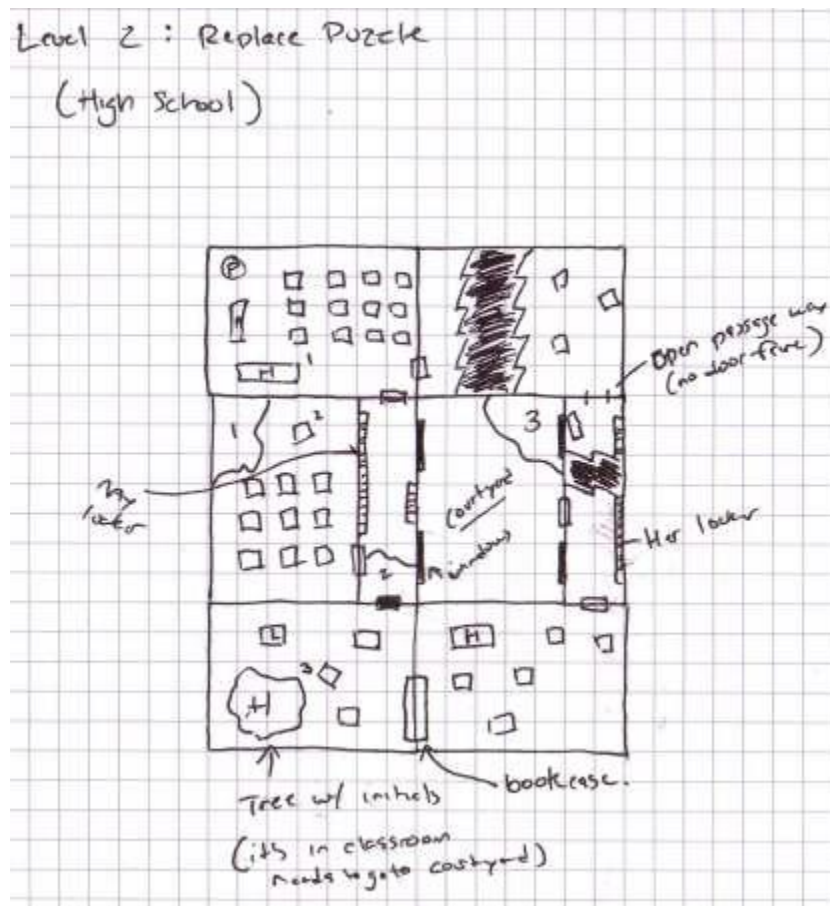 Level 2 : Replace Puzzle
(High School)
P
H
H
1
Open passage way
(no door frame)
1
2
3
My
locker
Courtyard
windows
Her locker
2
L
H
3
H
Tree w/ initials
bookcase.
(its in classroom
needs to go to courtyard)